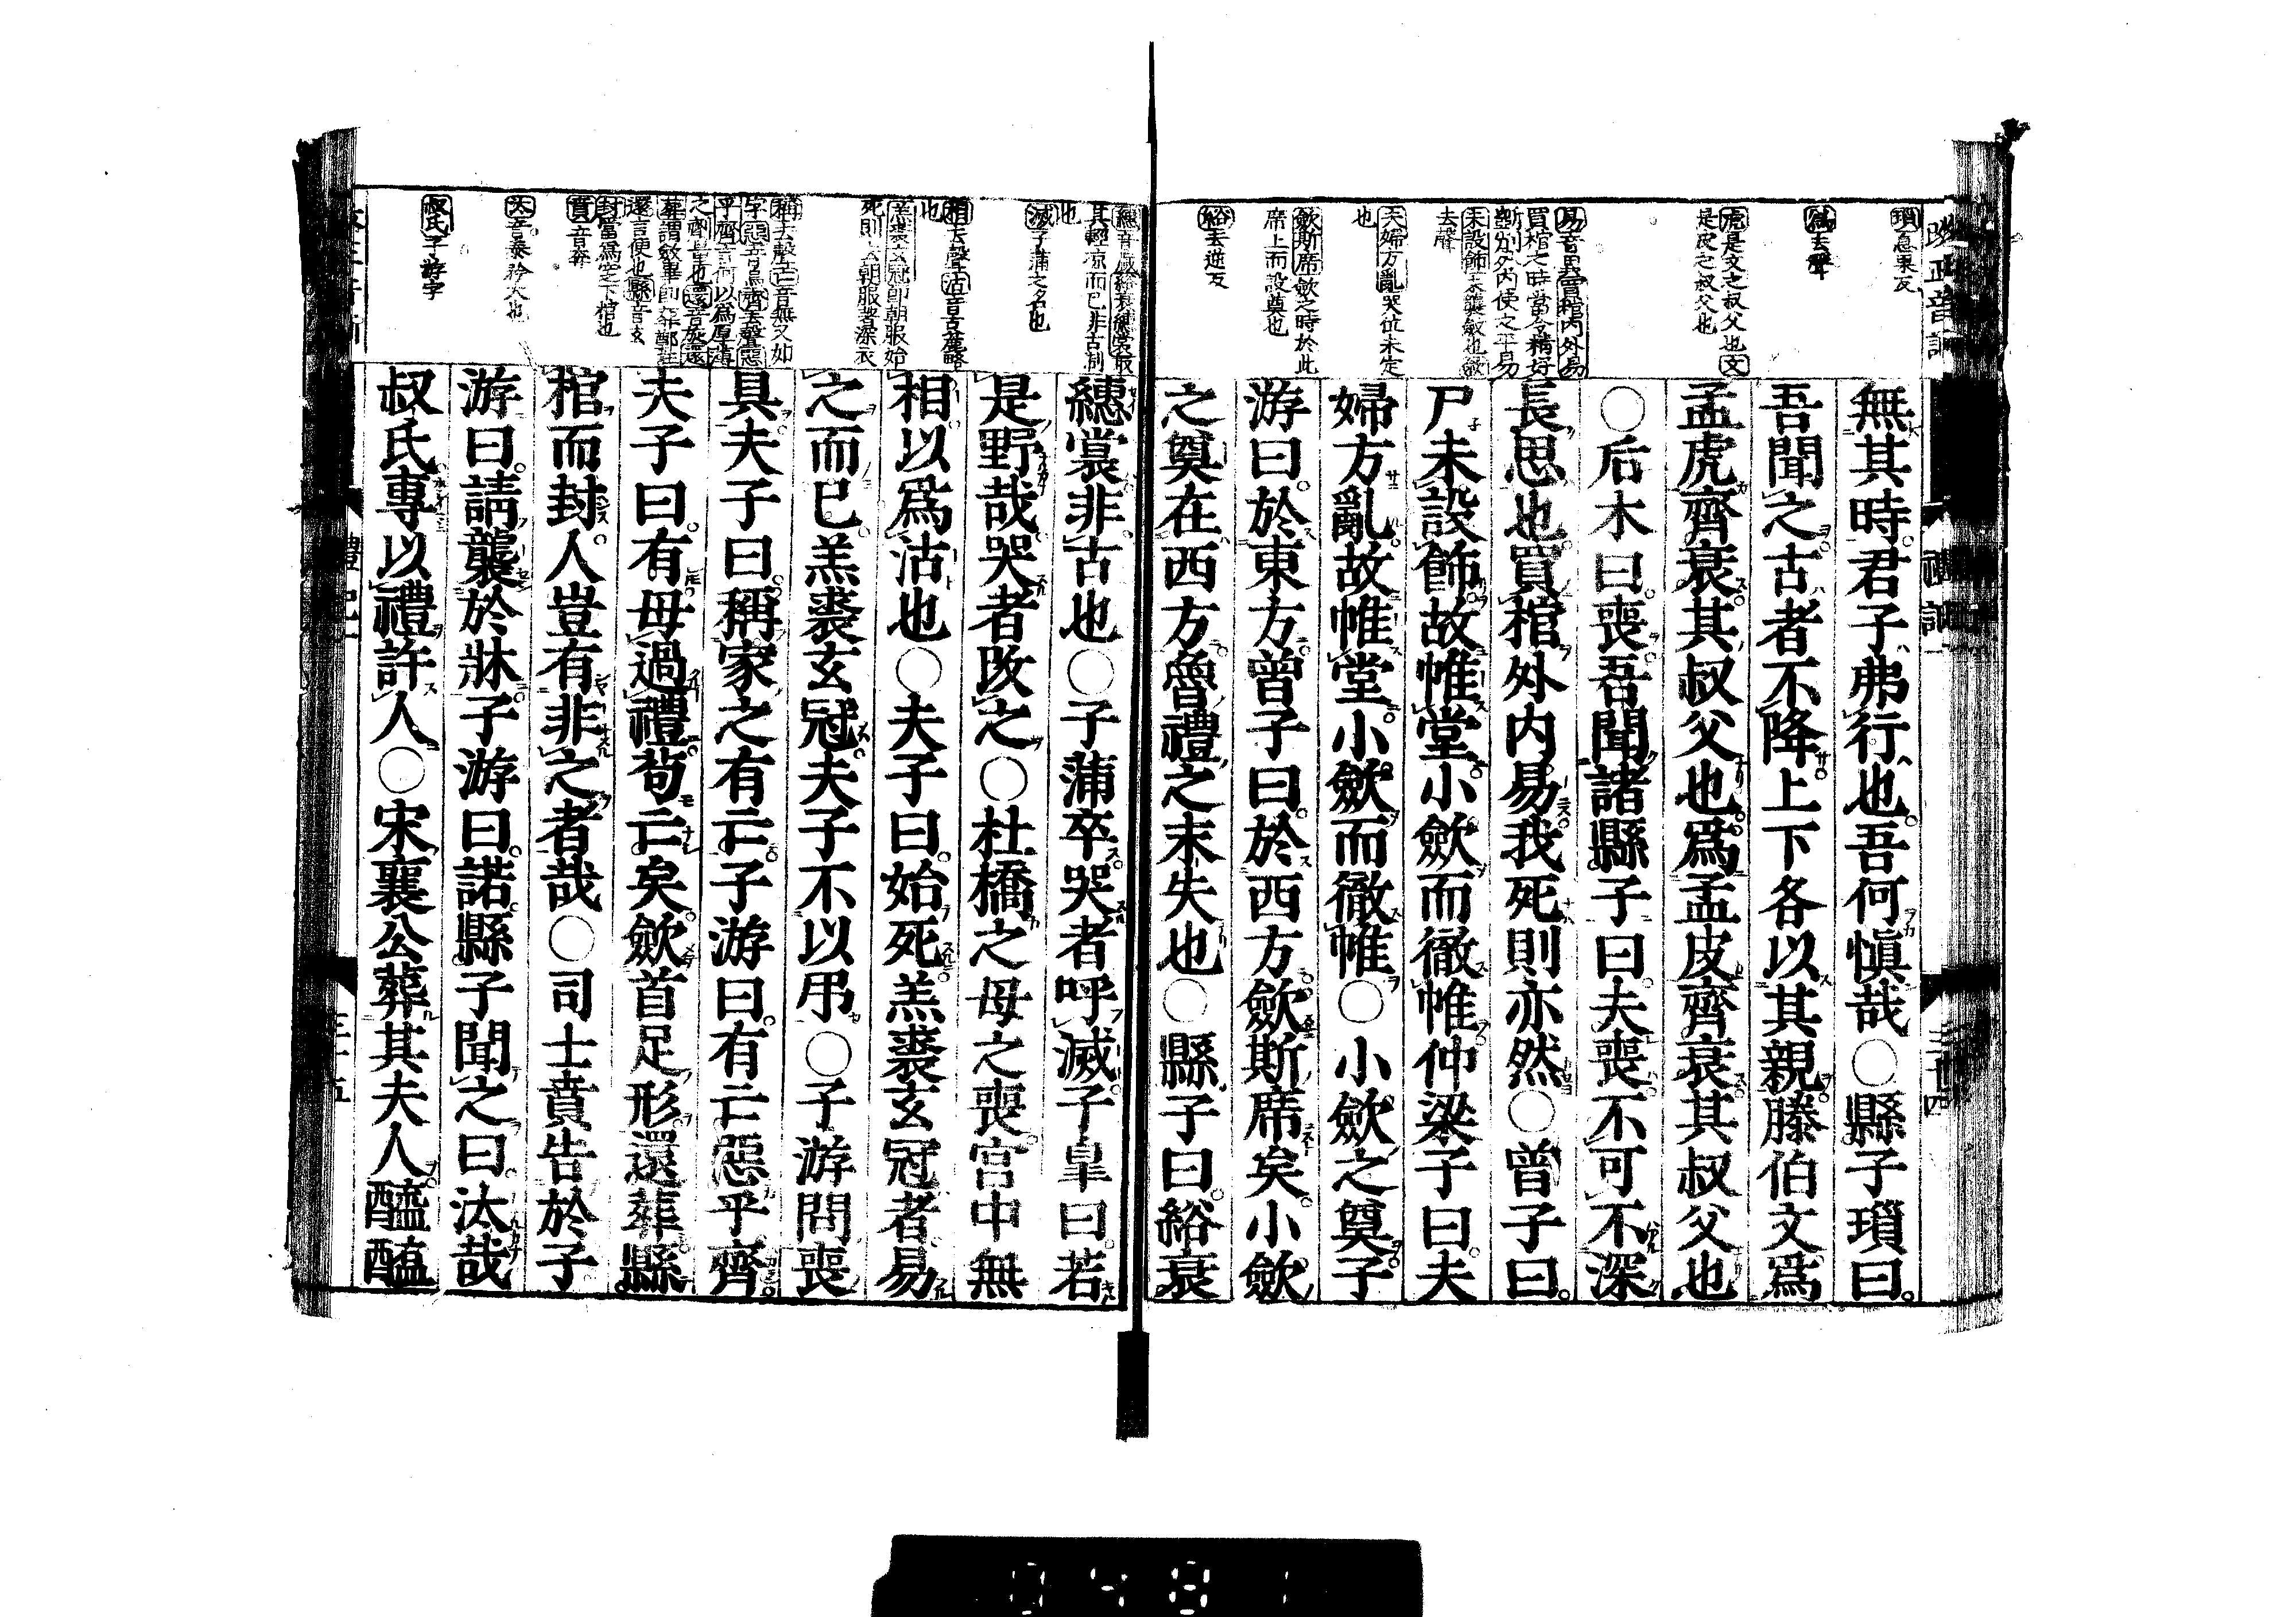 瑣息果反
爲去聲
虎是文之叔父也文
是皮之叔父也
易音異買棺內外易
買棺之時當令精好
斲削外內使之平易
未設飾未襲斂也斂
去聲
夫婦方亂哭位未定
也
斂斯席斂之時於此
席上而設奠也
綌去逆反
無其時君子弗行也吾何愼哉○縣子瑣曰
吾聞之古者不降上下各以其親滕伯文爲
孟虎齊衰其叔父也爲孟皮齊衰其叔父也
○后木曰喪吾聞諸縣子曰夫喪不可不深
長思也買棺外內易我死則亦然○曾子曰
尸未設飾故帷堂小斂而徹帷仲梁子曰夫
婦方亂故帷堂小斂而徹帷○小斂之奠子
游曰於東方曾子曰於西方斂斯席矣小斂
之奠在西方魯禮之末失也○縣子曰綌衰
其輕涼而已非古制
也
滅子蒲之名也
相去聲沽音古麤略
也
羔裘玄冠卽朝服始
死則去朝服著深衣
稱去聲亡音無又如
字惡音烏齊去聲惡
乎齊言何以爲厚薄
之齊量也還音旋還
葬謂斂畢卽葬鄭註
還言便也縣音玄
封當爲窆下棺也
賁音奔
汰音泰矜大也
叔氏子游字
繐裳非古也○子蒲卒哭者呼滅子皐曰若
是野哉哭者改之○杜橋之母之喪宮中無
相以爲沽也○夫子曰始死羔裘玄冠者易
之而已羔裘玄冠夫子不以弔○子游問喪
具夫子曰稱家之有亡子游曰有亡惡乎齊
夫子曰有毋過禮苟亡矣斂首足形還葬縣
棺而封人豈有非之者哉○司士賁告於子
游曰請襲於牀子游曰諾縣子聞之曰汰哉
叔氏專以禮許人○宋襄公葬其夫人醯醢